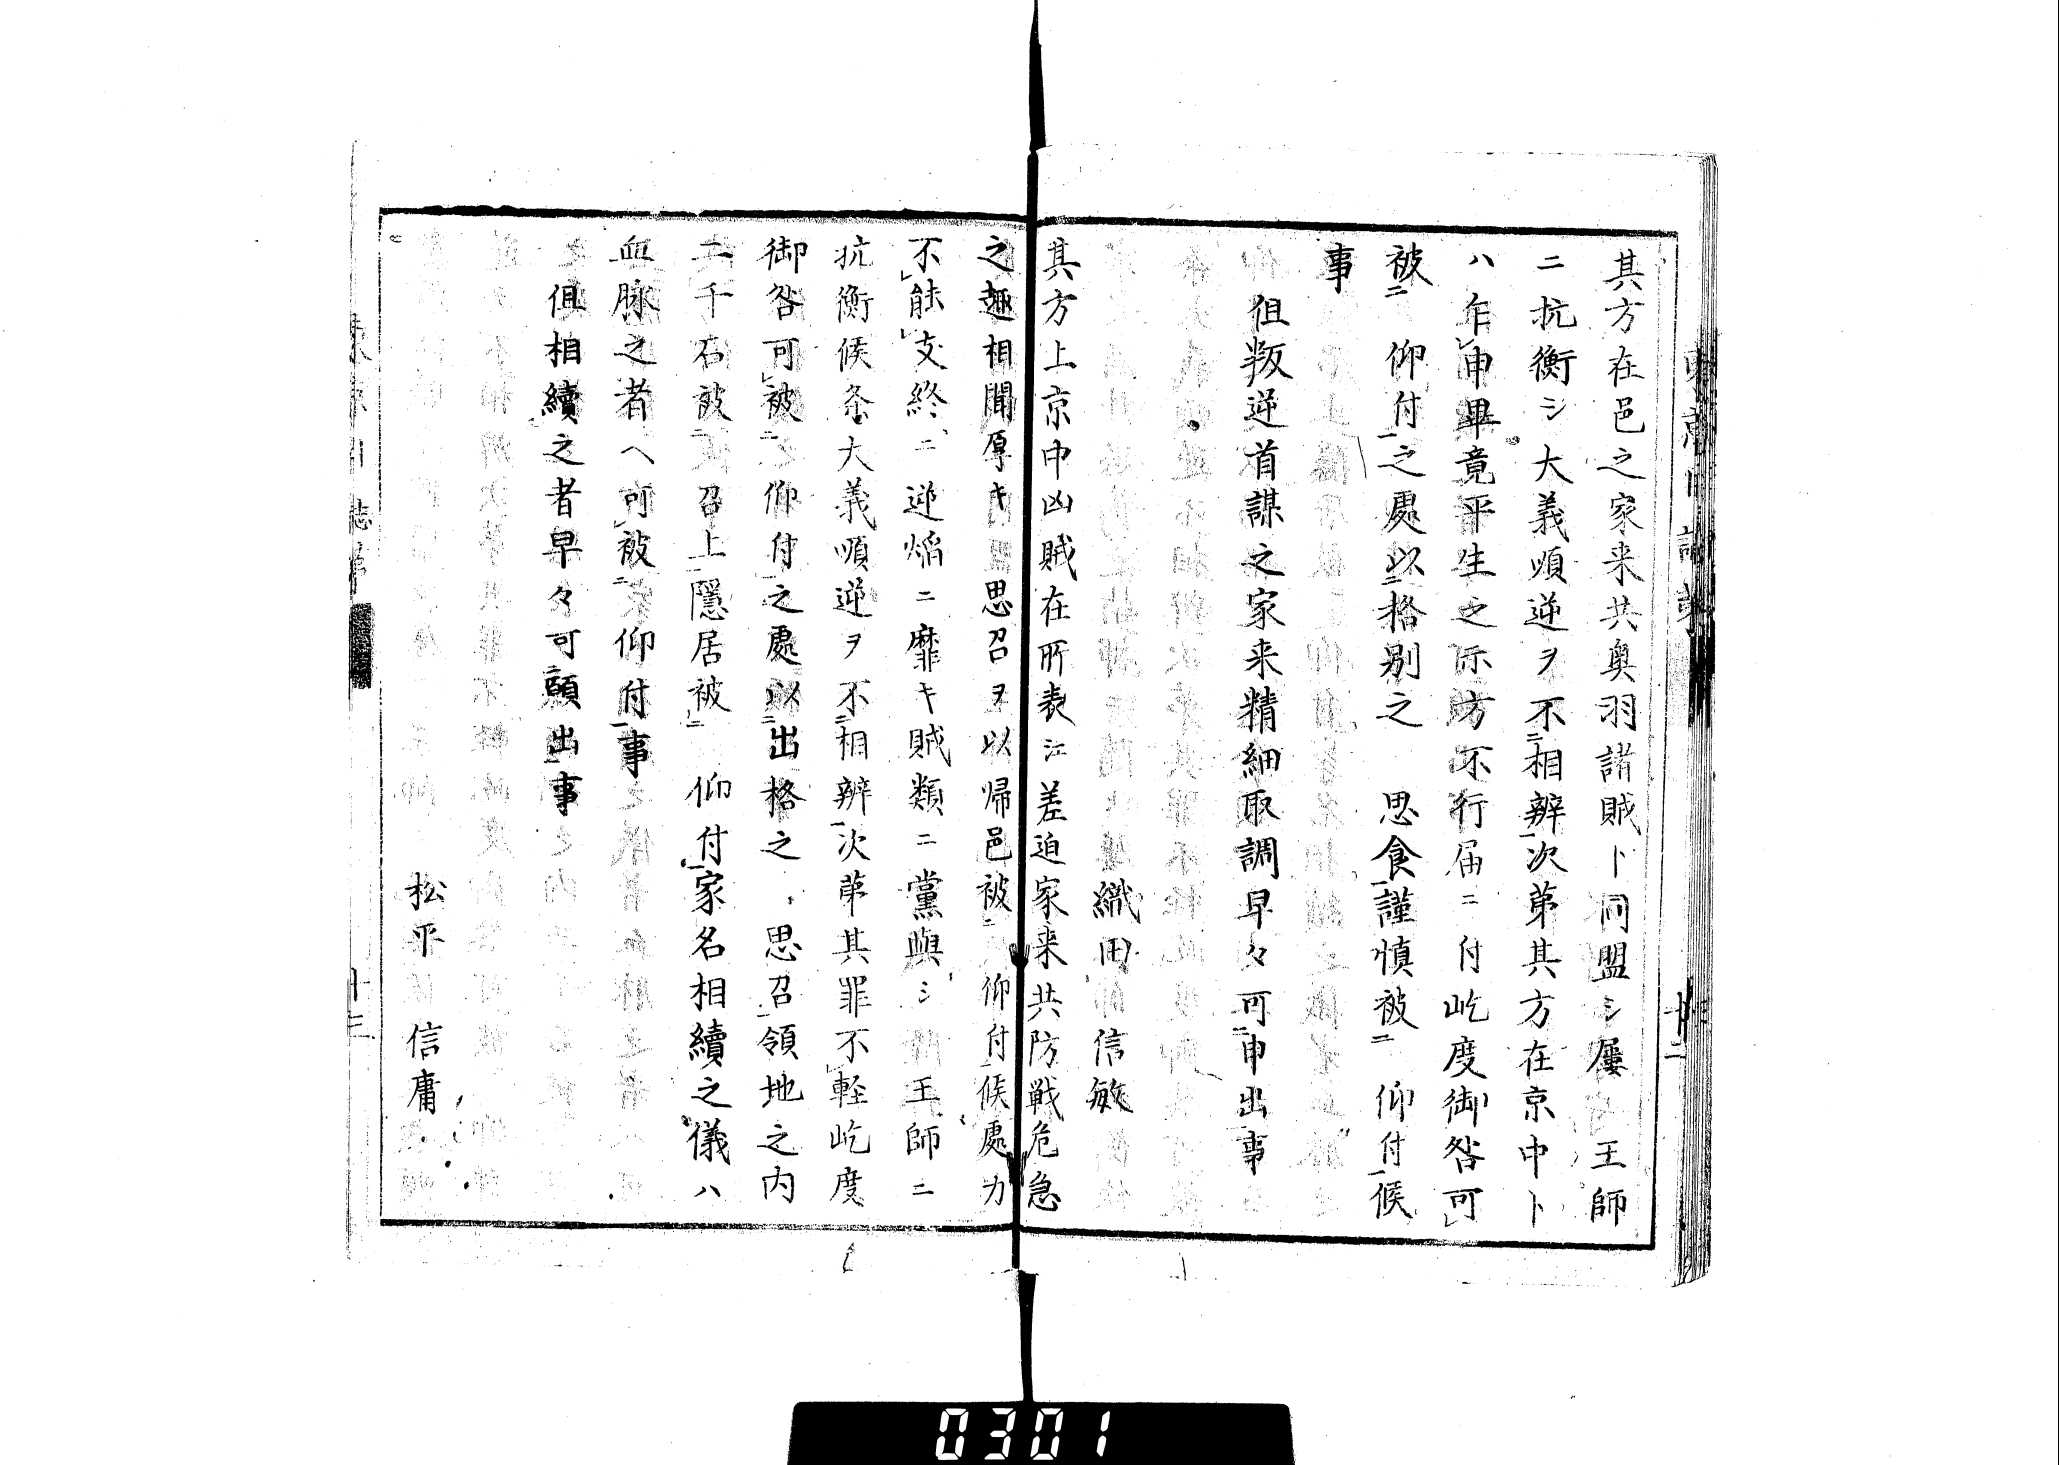 其方在邑之家来共奥羽諸賊ト同盟シ屡王師
ニ抗衡シ大義順逆ヲ不ニ相辨一次第其方在京中ト
ハ乍レ申畢竟平生之示方不行届ニ付屹度御咎可レ
被ニ 仰付一之處以ニ格別之 思食一謹慎被ニ 仰付一候
事
但叛逆首謀之家来精細取調早々可ニ申出事
織田信敏
其方上京中凶賊在所表江差迫家来共防戦危急
之趣相聞厚キ 思召ヲ以帰邑被ニ 仰付一候處力
不レ能レ支終ニ逆焔ニ靡キ賊類ニ黨與シ 王師ニ
抗衡候条大義順逆ヲ不ニ相辨一次第其罪不レ軽屹度
御咎可レ被ニ 仰付一之處以ニ出格之 思召一領地之内
二千石被ニ 召上一隠居被ニ 仰付一家名相續之儀ハ
血脉之者ヘ可レ被ニ 仰付一事
但相續之者早々可ニ願出一事
松平 信庸
十二
十三
0301